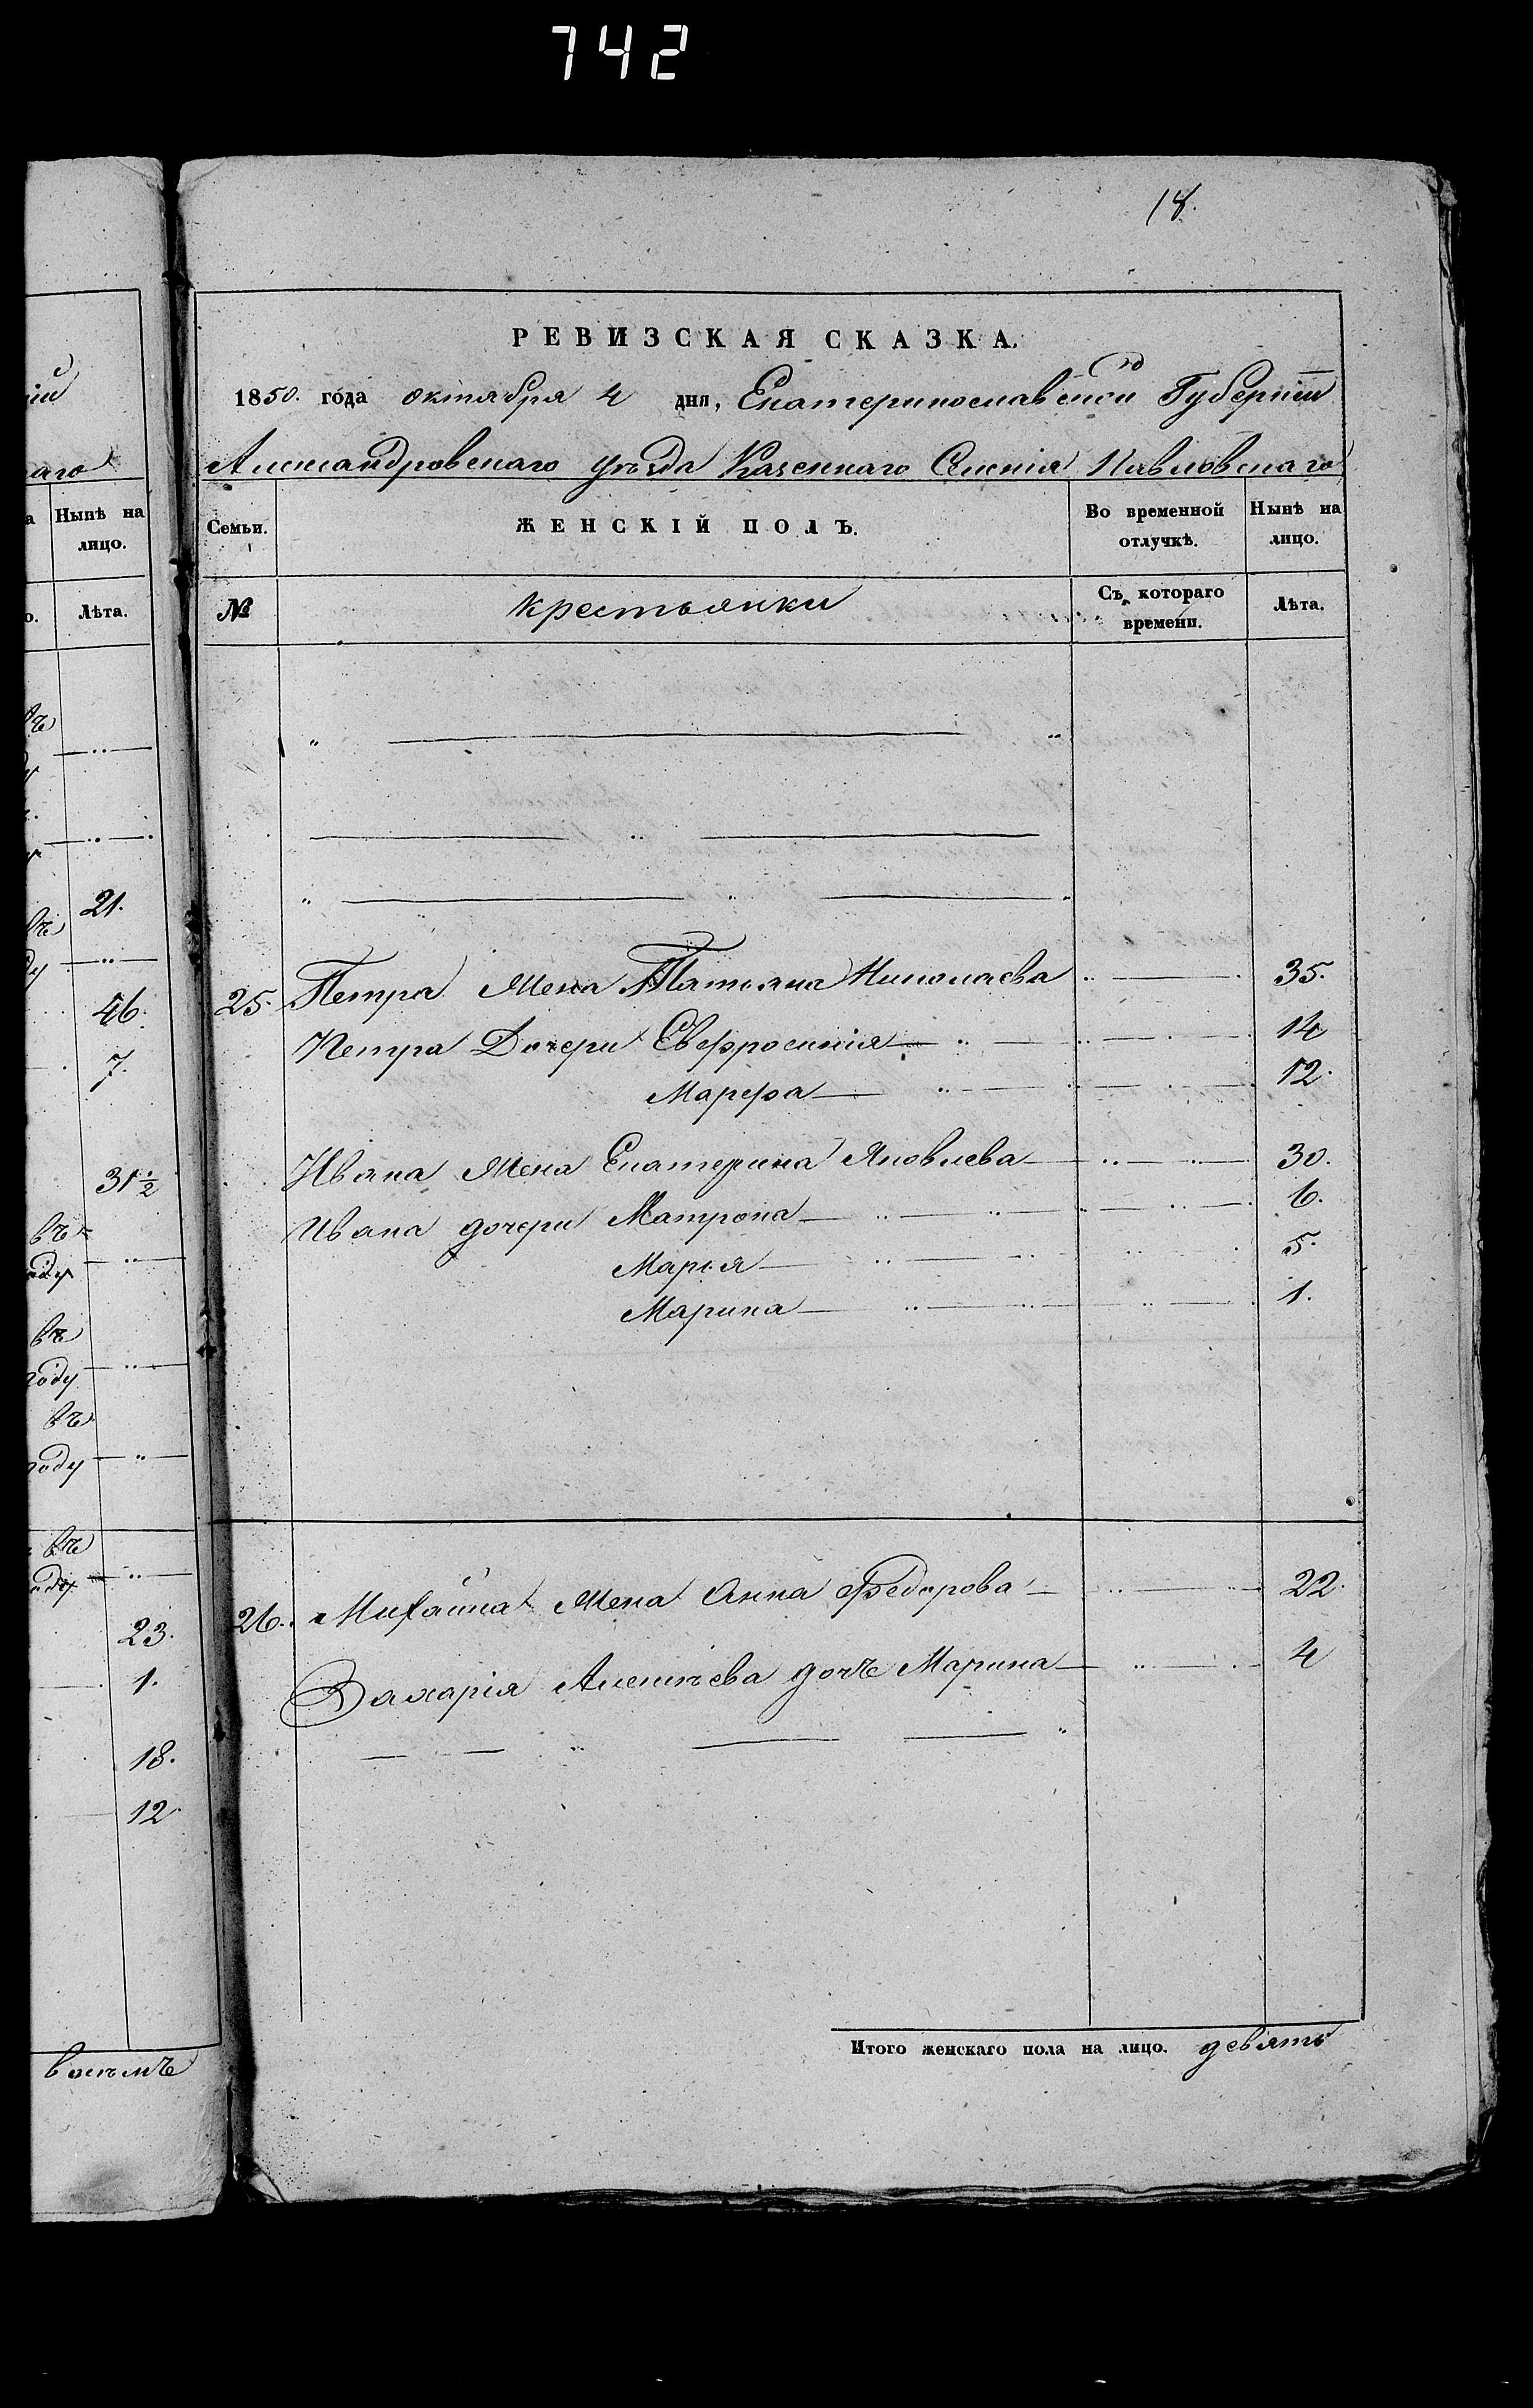 742
ій
аго
а
Нынѣ на
лицо.
о.
Лѣта.
21.
46.
7.
31 1/2
въ
оду
въ
году
въ
году
въ
оду
23.
1.
18.
12
восѣмъ
18.
РЕВИЗСКАЯ СКАЗКА.
1850. года октября 4 дня, Екатеринославской Губерніи
Александровскаго уѣзда Казеннаго Селенія Павловскаго
Семьи.
ЖЕНСКІЙ ПОЛЪ.
Во временной
отлучкѣ.
Нынѣ на
лицо.
№
крестьянки
Съ котораго
времени.
Лѣта.
25. Петра Жена Татьяна Николаева 35.
Петра Дочери Евфросинія 14
Марфа 12.
Ивана Жена Екатерина Яковлева 30.
Ивана дочери Матрона 6.
Марья 5.
Марина 1.
26. Михаила Жена Анна Федорова 22.
Захарія Алексѣева дочь Марина 4
Итого женскаго пола на лицо. девять